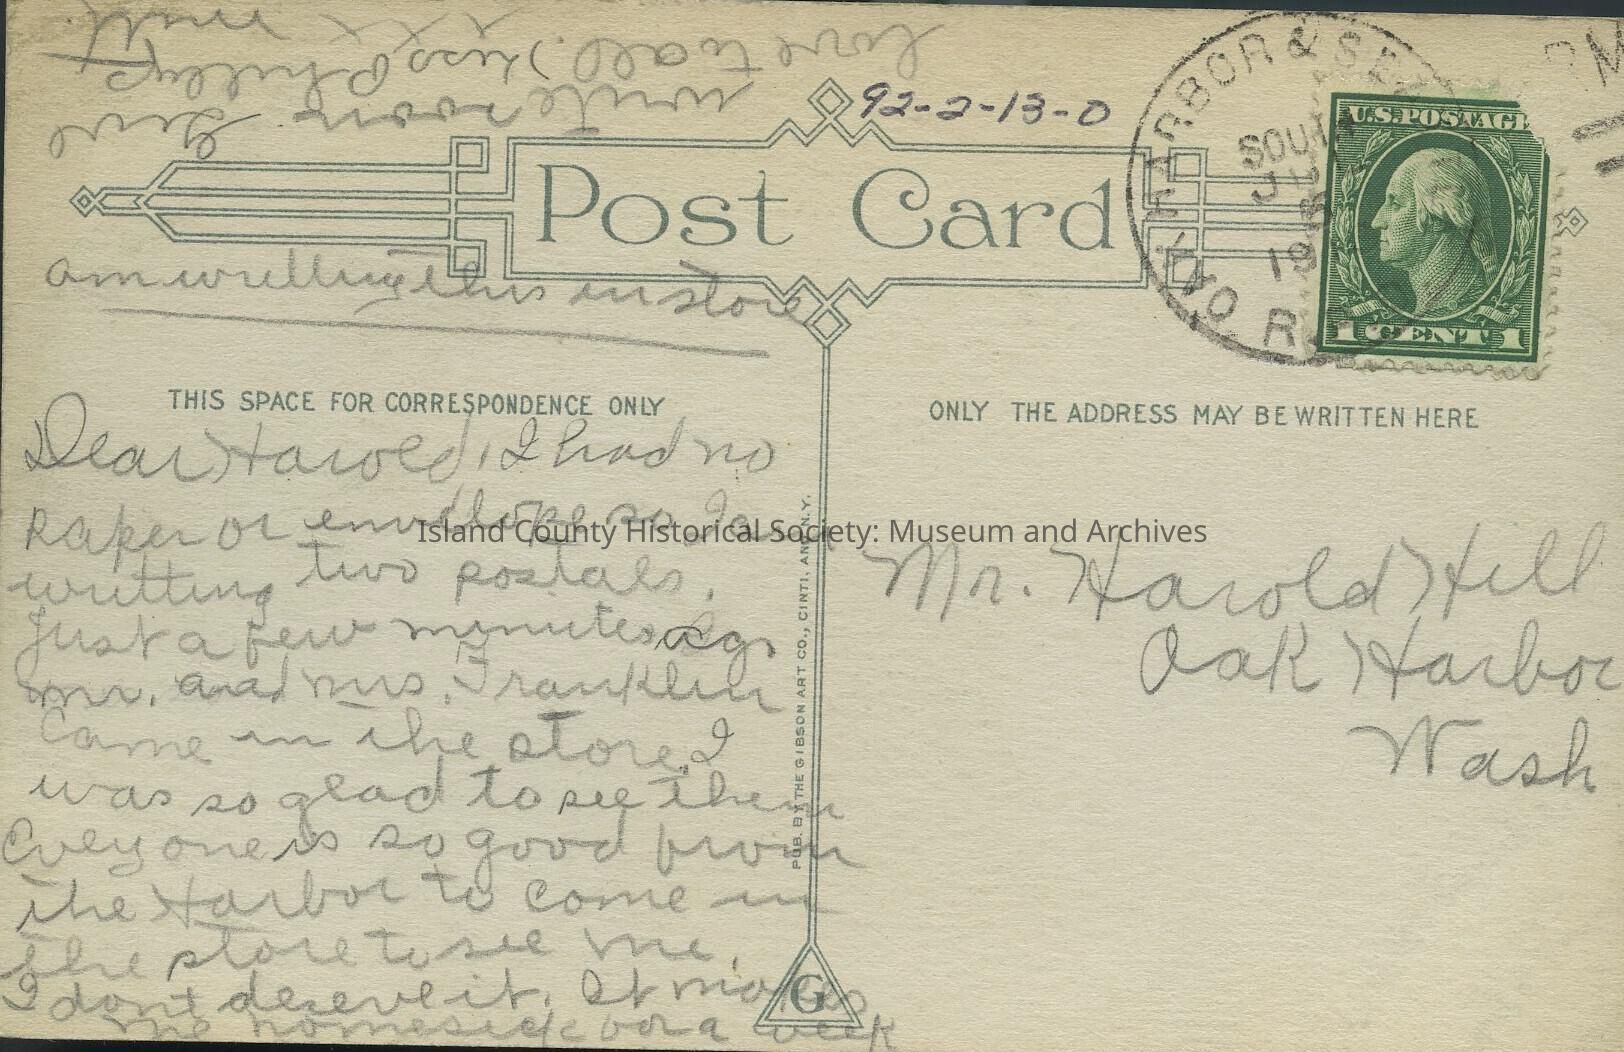 92-2-13-0
Post Card
OAK HARBOR & SE
SOUTH
19
R
U.S. POSTAGE
1 CENT 1
am writting this in store
THIS SPACE FOR CORRESPONDENCE ONLY
Dear Harold, I had no
paper or envelope so I am
writting two postals.
Just a few minutes ago
mr. and mrs. Franklin
Came in the store. I
was so glad to see them
Eveyone is so good from
the Harbor to come in
the store to see me.
I dont deserve it. It makes
me homesick for a week
write soon Give
love to all.
PUB. BY THE GIBSON ART CO., CINTI. AND N.Y.
G
ONLY THE ADDRESS MAY BE WRITTEN HERE
Mr. Harold Hill
Oak Harbor
Wash
Island County Historical Society: Museum and Archives